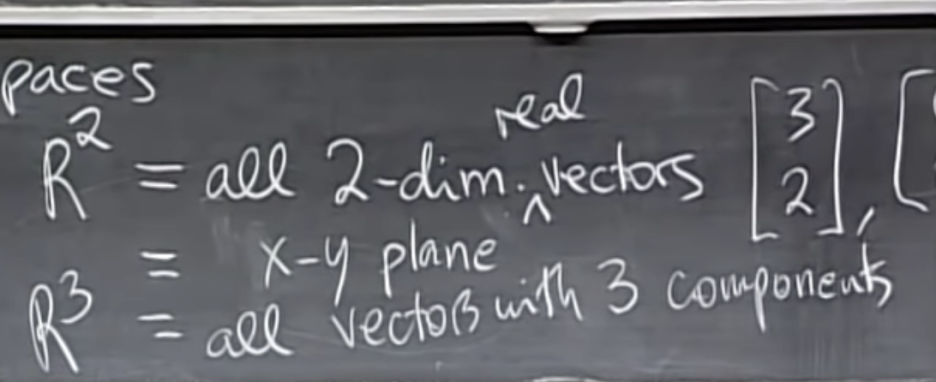 paces
R² = all 2-dim. real vectors [3 2],
= x-y plane
R³ = all vectors with 3 components